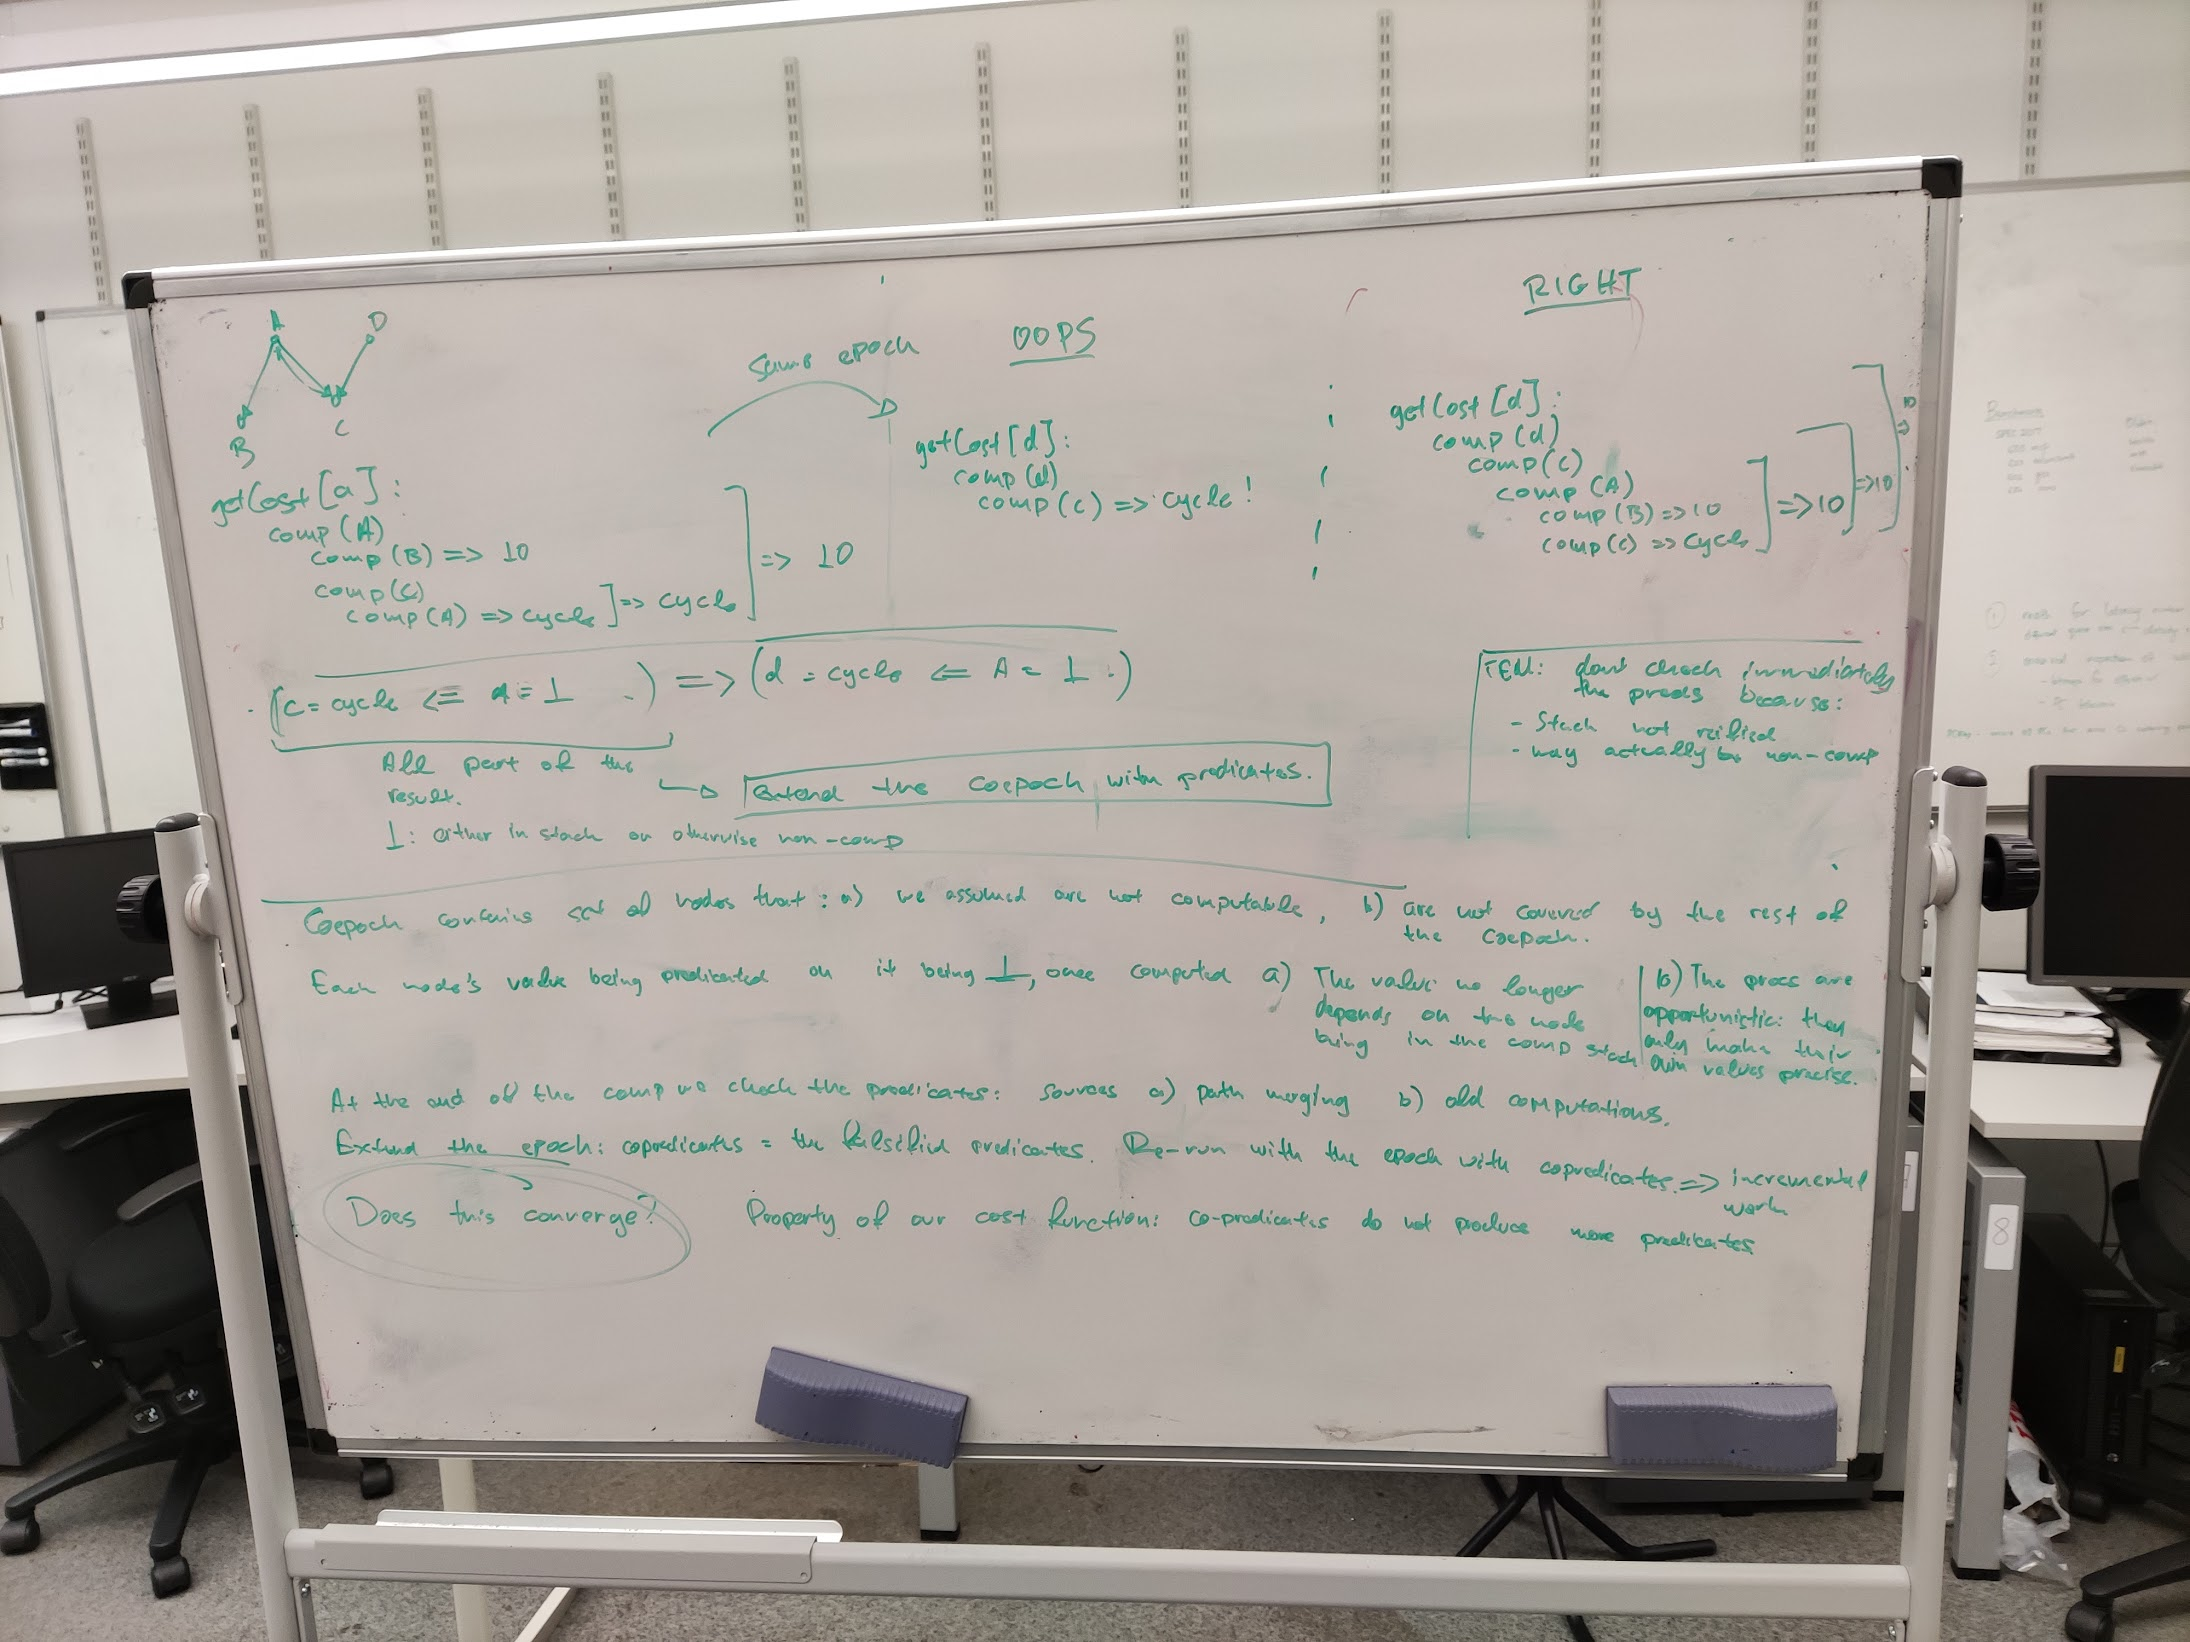 A
D
B
C
getCost[a]:
comp(A)
comp(B) => 10
comp(C)
comp(A) => cycle ] => cycle ] => 10
Same epoch
OOPS
getCost[d]:
comp(d)
comp(c) => cycle!
RIGHT
getCost[d]:
comp(d)
comp(C)
comp(A)
comp(B) => 10
comp(c) => cycle
] => 10
] => 10
] => 10
(C = cycle <= A = ⊥ .) => (d = cycle <= A = ⊥ .)
All part of the
result.
extend the Coepoch with predicates.
⊥: either in stack or otherwise non-comp
dont check immediately
the preds because:
- Stack not reified
- may actually be non-comp
Coepoch contains set of nodes that: a) we assumed are not computable, b) are not covered by the rest of
the Coepoch.
Each node's value being predicated on it being ⊥, once computed a) The value no longer
depends on the node
being in the comp stack
b) The procs are
opportunistic: they
only make their
own values precise.
At the end of the comp we check the predicates: sources a) path merging b) old computations.
Extend the epoch: copredicates = the falsified predicates. Re-run with the epoch with copredicates. => incremental
work
Does this converge?
Property of our cost function: co-predicates do not produce more predicates
Benchmarks
SPEC 2017
8